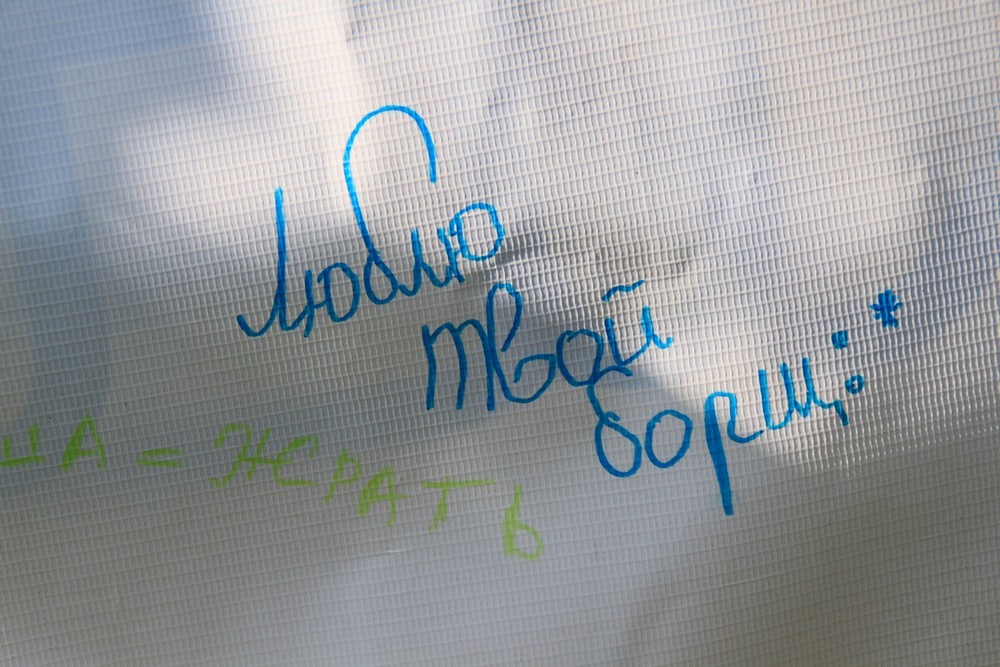 Люблю
твой
борщ :*
= ЖРАТЬ